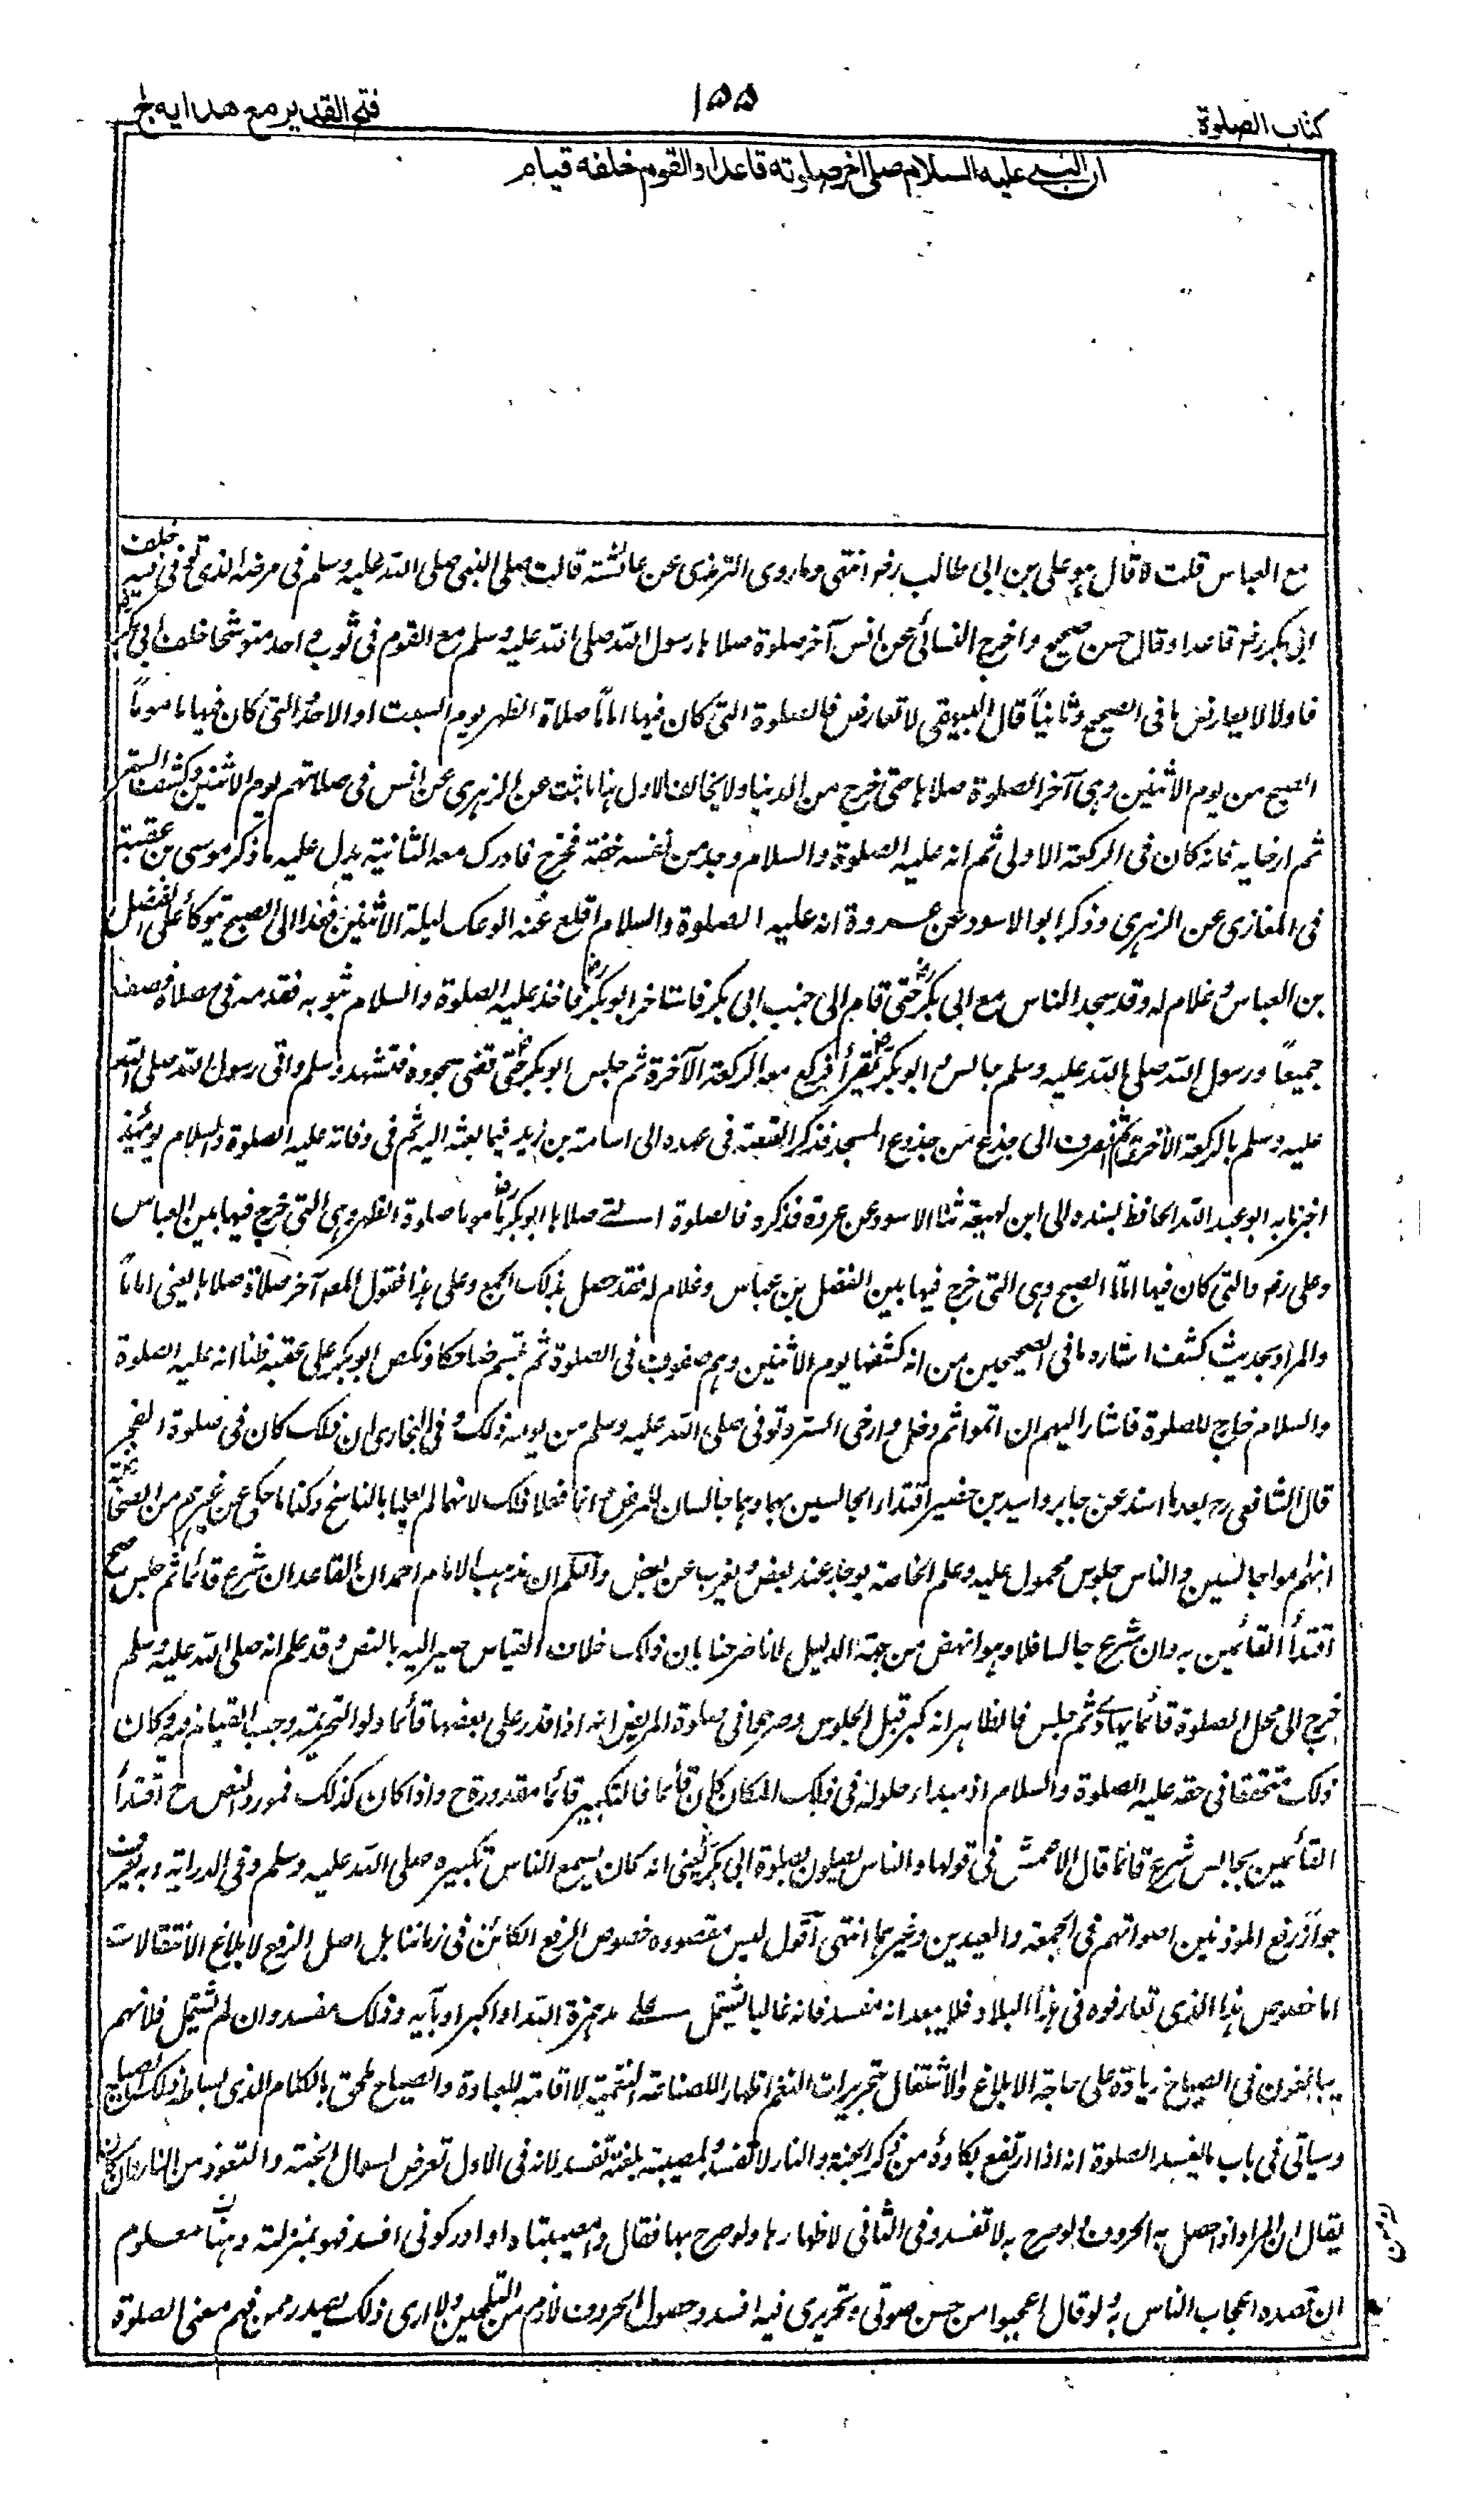 كتاب الصلوة
١٥٥
فتح القدير مع هدايه ج
ان النبي عليه السلام صلى اخر صلوته قاعدا والقوم خلفه قيام
مع العباس قلت لا قال هو علي بن ابي طالب رضه انتهى وما روى الترمذى عن عائشة قالت صلى النبي صلى الله عليه وسلم في مرضه الذى توفي فيه خلف
ابي بكر رضه قاعدا وقال حسن صحيح واخرج النسائي عن انس آخر صلوة صلاها رسول الله صلى الله عليه وسلم مع القوم في ثوب واحد متوشحا خلف ابي بكر
فاولا لا يعارض ما في الصحيح وثانياً قال البيهقي لا تعارض فالصلوة التي كان فيها اماماً صلاة الظهر يوم السبت او الاحد والتي كان فيها ماموماً
الصبح من يوم الاثنين وهي آخر الصلوة صلاها حتى خرج من الدنيا ولا يخالف الاول هذا ما ثبت عن الزهري عن انس في صلاتهم يوم الاثنين وكشف الستر
ثم ارخايه فانه كان في الركعة الاولى ثم انه عليه الصلوة والسلام وجد من نفسه خفة فخرج فادرك معه الثانية يدل عليه ما ذكر موسى بن عقبة
في المغازى عن الزهري وذكر ابو الاسود عن عروة انه عليه الصلوة والسلام اقلع عنه الوعك ليلة الاثنين فغدا الى الصبح يتوكأ على الفضل
بن العباس وغلام له وقد سجد الناس مع ابي بكر رض حتى قام الى جنب ابي بكر فاستاخر ابو بكر رض فاخذ عليه الصلوة والسلام بثوبه فقدمه في مصلاه فصفا
جميعاً ورسول الله صلى الله عليه وسلم جالس وابو بكر رض يقرأ فركع معه الركعة الآخرة ثم جلس ابو بكر رض حتى قضى سجوده فتشهد وسلم واتى رسول الله صلى الله
عليه وسلم بالركعة الاخرى ثم انصرف الى جذع من جذوع المسجد فذكر القصة في عهده الى اسامة بن زيد فيما بعثه اليه ثم في وفاته عليه الصلوة والسلام يومئذ
اخبرنا به ابو عبد الله الحافظ بسنده الى ابن لهيعة ثنا الاسود عن عروة فذكره فالصلوة التي صلاها ابو بكر رض ماموما صلوة الظهر وهي التي خرج فيها بين العباس
وعلي رضه والتي كان فيها اماماً الصبح وهي التي خرج فيها بين الفضل بن عباس وغلام له فقد حصل بذلك الجمع وعلى هذا فقول المصه آخر صلاة صلاها يعني اماماً
والمراد بحديث كشف الستارة ما في الصحيحين من انه كشفها يوم الاثنين وهم صفوف في الصلوة ثم تبسم ضاحكا ونكص ابو بكر على عقبيه ظنا انه عليه الصلوة
والسلام خارج للصلوة فاشار اليهم ان اتموا ثم دخل وارخى الستر وتوفى صلى الله عليه وسلم من يومه ذلك وفي البخارى ان ذلك كان في صلوة الفجر
قال الشافعي رح بعد ما اسند عن جابر واسيد بن حضير اقتداء الجالسين بهما وهما جالسان للمرض انما فعلا ذلك لانهما لم يعلما بالناسخ وكذا ما حكى عن غيرهم من الصحابة
انهم اموا جالسين والناس جلوس محمول عليه وعلم الخاصة يوجد عند بعض ويغرب عن بعض واعلم ان مذهب الامام احمد ان القاعد ان شرع قائما ثم جلس صح
اقتدأ القائمين به وان شرع جالسا فلا وهو انهض من جهة الدليل لانا صرحنا بان ذلك خلاف القياس صير اليه بالنص وقد علم انه صلى الله عليه وسلم
خرج الى محل الصلوة قائما يهادى ثم جلس فالظاهر انه كبر قبل الجلوس وصرحوا في صلوة المريض انه اذا قدر على بعضها قائما ولو التحريمة وجب القيام فيه وكان
ذلك متحققا في حقه عليه الصلوة والسلام اذ مبداء حلوله في ذلك المكان كان قائما فالتكبير قائما مقدورة ح واذا كان كذلك فمورد النص ح اقتدأ
القائمين بجالس شرع قائما قال الاعمش في قولها والناس يصلون بصلوة ابي بكر رض يعني انه كان يسمع الناس تكبيره صلى الله عليه وسلم وفي الدراية وبه يعرف
جواز رفع المؤذنين اصواتهم في الجمعة والعيدين وغيرهما انتهى اقول ليس مقصوده خصوص الرفع الكائن في زماننا بل اصل الرفع لابلاغ الانتقالات
اما خصوص هذا الذى تعارفوه في هذا البلاد فلا يبعد انه مفسد فانه غالبا يشتمل على مد همزة الله او اكبر او بائه وذلك مفسد وان لم يشتمل فلانهم
يبالغون في الصياح زيادة على حاجة الابلاغ والاشتغال بتحريرات النغم اظهارا للصناعة النغمية لا اقامة للعبادة والصياح ملحق بالكلام الذى بساطه ذلك الصياح
وسياتي في باب ما يفسد الصلوة انه اذا ارتفع بكاؤه من ذكر الجنة والنار لا تفسد ولمصيبة بلغته تفسد لانه في الاول تعرض لسوال الجنة والتعوذ من النار وان كان
يقال ان المراد اذا حصل به الحروف ولو صرح به لا تفسد وفي الثاني لاظهارها ولو صرح بها فقال وامصيبتاه او ادركوني افسد فهو بمنزلته وهنا معلوم
ان قصده اعجاب الناس به ولو قال اعجبوا من حسن صوتي وتحريرى فيه افسد وحصول الحروف لازم من التلحين ولا ارى ذلك يصدر ممن فهم معنى الصلوة